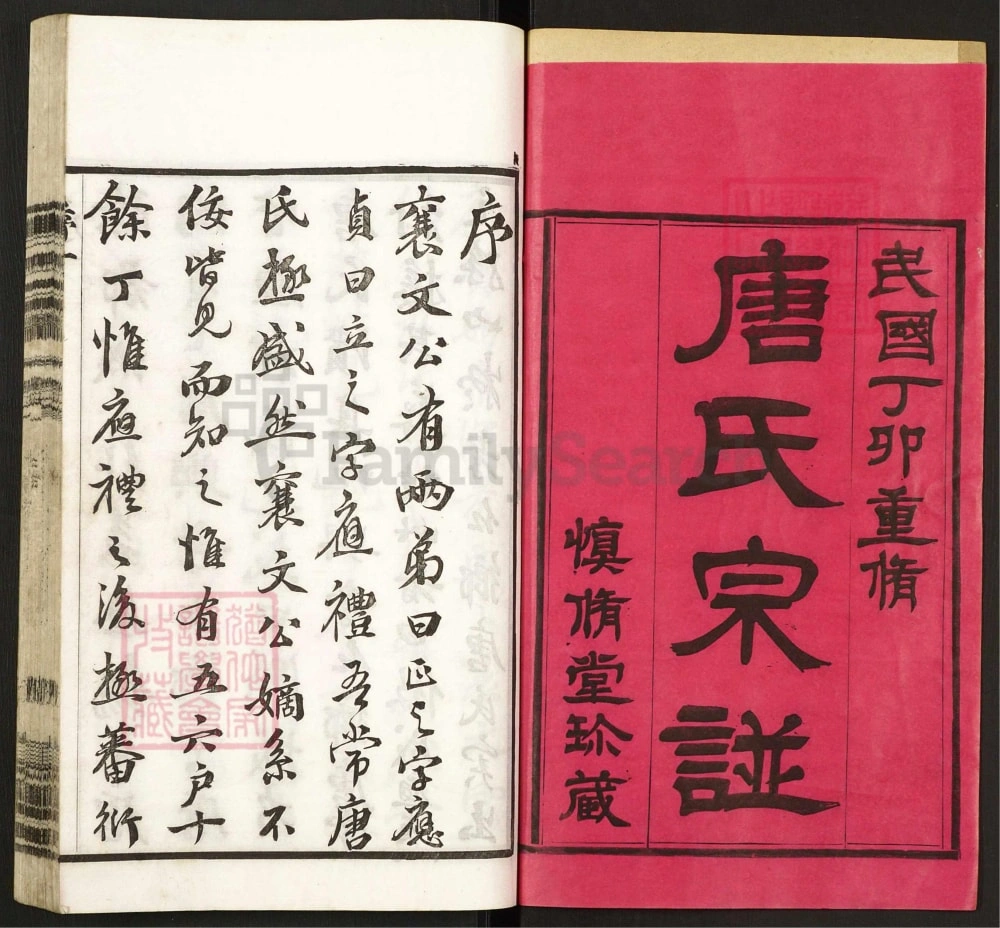 民國丁卯重脩
唐氏宗譜
慎脩堂珍藏
序
襄文公有兩弟曰正之字應
貞曰立之字應禮吾常唐
氏極盛然襄文公嫡系不
佞皆見而知之惟有五六戶十
餘丁惟應禮之後極蕃衍
序一
FamilySearch